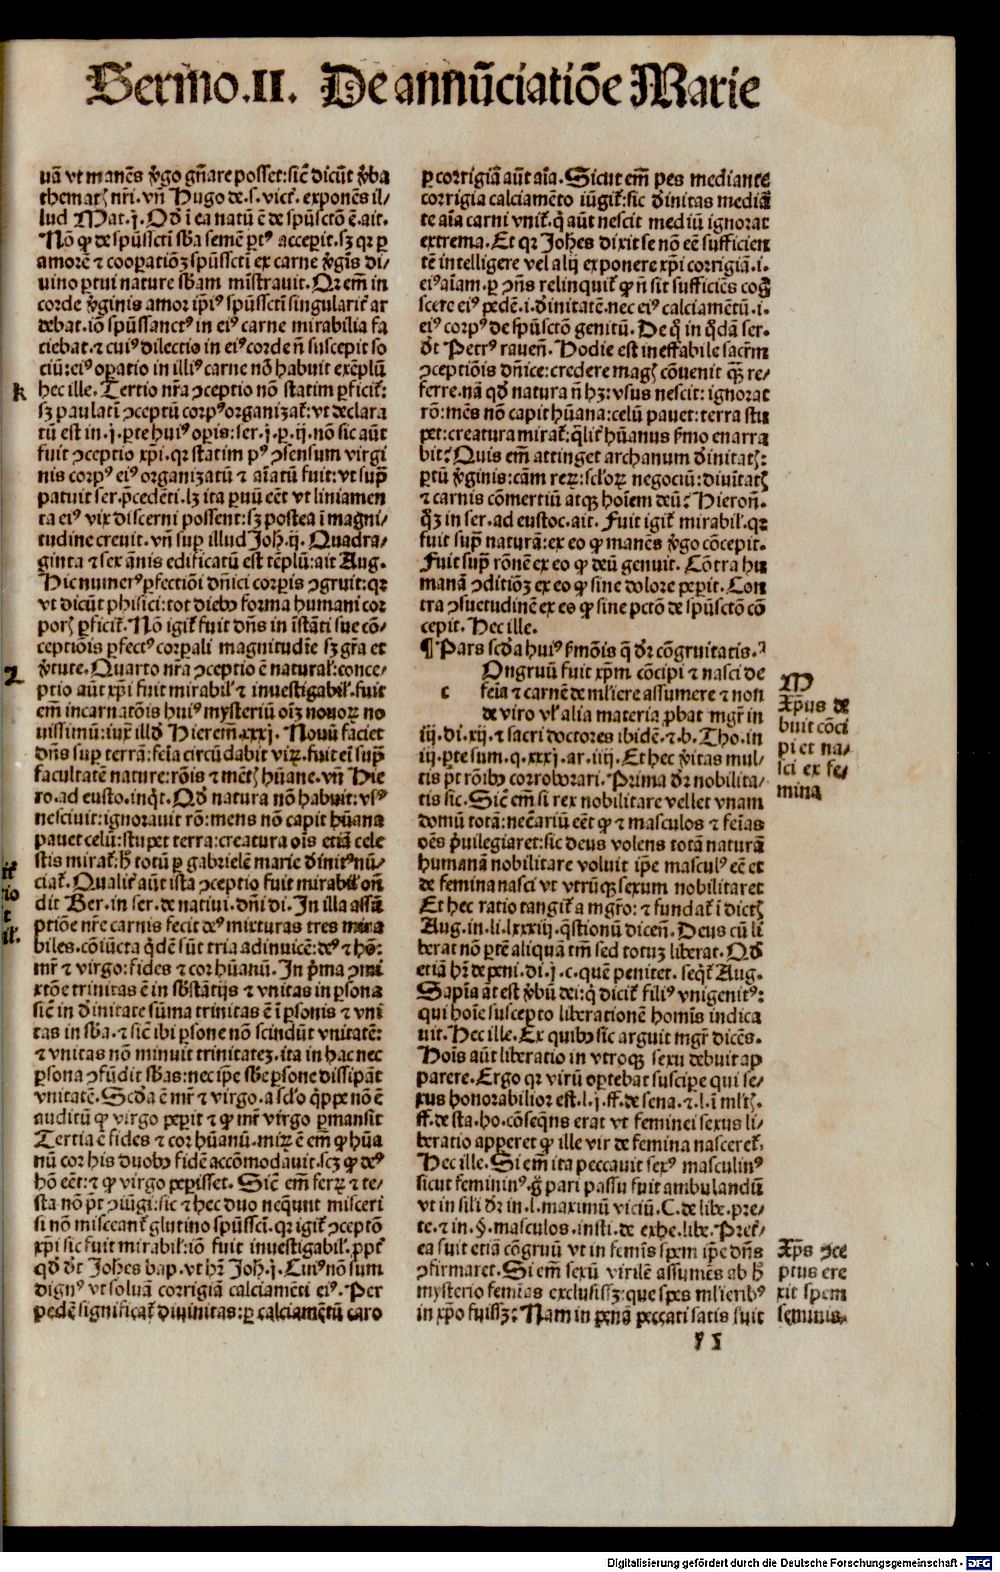 Sermo.II. De annũciatiõe Marie
uã vt manẽs v̾go gñare posset: sic̃ dicũt v̾ba
themat̛ nr̃i. vñ Hugo de.s.vict̃. exponẽs il⸗
lud Mat.j. Qd̾ ĩ ea natũ ẽ de spũsctõ ẽ. ait.
Nõ ꝙ de spũsscti sb̃a semẽ ꝑtꝰ acceꝑit. sꝫ qꝛ ꝑ
amorẽ ⁊ cooꝑatiõꝫ spũsscti ex carne v̾gĩs di⸗
uino ꝑtui nature sb̃am mĩstrauit. Qꝛ em̃ in
corde v̾ginis amor ip̃iꝰ spũsscti singularit̃ ar
debat. iõ spũssanctꝰ in eiꝰ carne mirabilia fa
ciebat. ⁊ cuiꝰ dilectio in eiꝰ corde ñ suscepit so
ciũ: eiꝰ oꝑatio in illiꝰ carne nõ habuit exẽplũ
k
hec ille. Tertio nr̃a ꝯceptio nõ statim ꝑficit̃:
sꝫ paulatĩ ꝯceptũ corpꝰ organizat̃: vt declara
tũ est in.j.ꝑte huiꝰ oꝑis: ser.j.ꝑ.ij. nõ sic aũt
fuit ꝯceptio xp̃i. qꝛ statim pꝰ ꝯsensum virgi
nis corpꝰ eiꝰ organizatũ ⁊ aĩatũ fuit: vt sup̃
patuit ser. p̃cedẽti. lꝫ ita paruũ eẽt vt liniamen
ta eiꝰ vix discerni possent: sꝫ postea ĩ magni⸗
tudine creuit. vñ sup̃ illud Joh̃.ij. Quadra⸗
ginta ⁊ sex ãnis edificatũ est tẽplũ: ait Aug.
Hic numerꝰ ꝑfectiõi dñici corꝑis ꝯgruit: qꝛ
vt dicũt phisici: tot diebꝫ forma humani cor
poris ꝑficit̃. Nõ igit̃ fuit dñs in ĩstãti sue cõ⸗
ceptiõis ꝑfectꝰ corꝑali magnitudĩe sꝫ gr̃a et
l
v̾tute. Quarto nr̃a ꝯceptio ẽ natural̃: conce⸗
ptio aũt xp̃i fuit mirabil̃ ⁊ inuestigabil̃. fuit
em̃ incarnatõis huiꝰ mysteriũ oĩꝫ nouoꝝ no
uissimũ: iux̃ illd̾ Hierem̃.xxxj. Nouũ faciet
dñs suꝑ terrã: fẽia circũdabit virꝝ. fuit eĩ sup̃
facultatẽ nature: rõis ⁊ mẽt̛ hũane. vñ Hie
ro. ad eusto. inq̃t. Qd̾ natura nõ habuit: vsꝰ
nesciuit: ignorauit rõ: mens nõ capit hũana
pauet celũ: stupet terra: creatura oĩs etiã cele
stis mirat̃: h̃ totũ ꝑ gabrielẽ marie diuinitꝰ nũ⸗
ciat̃. Qualit̃ aũt ista ꝯceptio fuit mirabil̃ oñ
dit Ber. in ser. de natiui. dñi di. In illa assũ
ptiõe nr̃e carnis fecit deꝰ mixturas tres mira
biles. cõiũcta q̃dẽ sũt tria adinuicẽ: deꝰ ⁊ hõ:
mr̃ ⁊ virgo: fides ⁊ cor hũanũ. In p̃ma ꝯmi
xtõe trinitas ẽ in sb̃stãtijs ⁊ vnitas in ꝑsona
sic̃ in diuinitate sũma trinitas ẽ ĩ ꝑsonis ⁊ vni
tas in sb̃a. ⁊ sic̃ ibi ꝑsone nõ scindũt vnitatẽ:
⁊ vnitas nõ minuit trinitateꝫ. ita in hac nec
ꝑsona ꝯfũdit sb̃as: nec ip̃e sb̃e ꝑsone dissipãt
vnitatẽ. Scd̾a ẽ mr̃ ⁊ virgo. a sclo q̃ppe nõ ẽ
auditũ ꝙ virgo peꝑit ⁊ ꝙ mr̃ virgo ꝑmansit
Tertia ẽ fides ⁊ cor hũanũ. miꝝ ẽ em̃ ꝙ hũa
nũ cor his duobꝫ fidẽ accõmodauit. scꝫ ꝙ deꝰ
hõ eẽt: ⁊ ꝙ virgo peꝑisset. Sic̃ em̃ ferꝝ ⁊ te⸗
sta nõ p̃t ꝯiũgi: sic ⁊ hec duo neq̃unt misceri
si nõ misceant̃ glutino spũssci. qꝛ igit̃ ꝯceptõ
xp̃i sic fuit mirabil̃: iõ fuit inuestigabil̃. ppt̃
qd̾ dt̃ Johẽs bap. vt hr̃ Joh̃.j. Cuiꝰ nõ sum
dignꝰ vt soluã corrigiã calciamẽti eiꝰ. Per
pedẽ significat̃ diuinitas: ꝑ calciamẽtũ caro
ꝑ corrigiã aũt aĩa. Sicut em̃ pes mediante
corrigia calciamẽto iũgit̃: sic diuinitas mediã
te aĩa carni vnit̃. q̃ aũt nescit mediũ ignorat
extrema. Et qꝛ Johẽs dixit se nõ eẽ sufficien
tẽ intelligere vel alij exponere xp̃i corrigiã.i.
eiꝰ aĩam. ꝑ ꝯñs relinquit̃ ꝙ ñ sit sufficiẽs cog̃
scere eiꝰ pedẽ.i.diuinitatẽ. nec eiꝰ calciamẽtũ.i.
eiꝰ corpꝰ de spũsctõ genitũ. De q̃ in q̃dã ser.
dt̃ Petrꝰ raueñ. Hodie est ineffabile sacrm̃
ꝯceptiõis dñice: credere mag̛ cõuenit q̃ꝫ re⸗
ferre. nã qd̾ natura ñ hꝫ: vsus nescit: ignorat
rõ: mẽs nõ capit hũana: celũ pauet: terra stu
pet: creatura mirat̃: q̃lit̃ hũanus ẜmo enarra
bit? Quis em̃ attinget archanum diuinitat̛:
partũ v̾ginis: cãm reꝝ: scl̃oꝝ negociũ: diuitat̛
⁊ carnis cõmertiũ atqꝫ hoĩem deũ? Hieroñ.
q̃ꝫ in ser. ad eustoc. ait. Fuit igit̃ mirabil̃. qꝛ
fuit sup̃ naturã: ex eo ꝙ manẽs v̾go cõcepit.
Fuit sup̃ rõnẽ ex eo ꝙ deũ genuit. Cõtra hu
manã ꝯditiõꝫ ex eo ꝙ sine dolore peꝑit. Con
tra ꝯsuetudinẽ ex eo ꝙ sine pctõ de spũsctõ cõ
cepit. Hec ille.
¶ Pars scd̾a huiꝰ ẜmõis q̃ dr̃ cõgruitatis.
c Ongruũ fuit xp̃m cõcipi ⁊ nasci de
feĩa ⁊ carnẽ de ml̃iere assumere ⁊ non
de viro vl̃ alia materia ꝓbat mgr̃ in
iij.di.xij. ⁊ sacri doctores ibidẽ. ⁊.b. Tho. in
iij. ꝑte sum.q.xxxj.ar.iiij. Et hec v̾itas mul⸗
tis p̃t rõibꝫ corroborari. Prima dr̃ nobilita⸗
tis sic. Sic̃ em̃ si rex nobilitare vellet vnam
domũ totã: necc̃ariũ eẽt ꝙ ⁊ masculos ⁊ feĩas
oẽs p̃uilegiaret: sic deus volens totã naturã
humanã nobilitare voluit ip̃e masculꝰ eẽ et
de femina nasci vt vtrũqꝫ sexum nobilitaret
Et hec ratio tangit̃ a mgr̃o: ⁊ fundat̃ ĩ dict̛
Aug. in.li.lxxxiij. q̃stionũ dicen̄. Deus cũ li
berat nõ ꝑtẽ aliquã tm̃ sed totuꝫ liberat. Qd̾
etiã hr̃ de peni.di.j.c. quẽ penitet. seq̃t̃ Aug.
Sapĩa ãt est v̾bũ dei: q̃ dicit̃ filiꝰ vnigenitꝰ:
qui hoĩe suscepto liberationẽ homĩs indica
uit. Hec ille. Ex quibꝫ sic arguit mgr̃ dicẽs.
Hoĩs aũt liberatio in vtroqꝫ sexu debuit ap
parere. Ergo qꝛ virũ oꝑtebat suscipe qui se⸗
xus honorabilior est.l.j.ff. de sena.⁊.l.ĩ mlt̛.
ff. de sta.ho. cõseq̃ns erat vt feminei sexus li⸗
beratio apꝑeret ꝙ ille vir de femina nasceret̃.
Hec ille. Si em̃ ita peccauit sexꝰ masculinꝰ
sicut femininꝰ. g̃ pari passu fuit ambulandũ
vt in sili dr̃ in.l. maximũ viciũ. C. de libe. pre⸗
te. ⁊ in.§. masculos. insti. de exhe. libe. Pret̃⸗
ea fuit etiã cõgruũ vt in femĩs spem ip̃e dñs
ꝯfirmaret. Si em̃ sexũ virilẽ assumẽs ab h̾
mysterio femĩas exclusissꝫ: que spes ml̃ieribꝰ
in xp̃o fuissꝫ? Nam in penã peccati satis fuit
M
Xp̃us de
buit cõci
pi et na⸗
sci ex fe⸗
mina
Xp̃s ꝯce
ptus ere
xit spem
r 5
Digitalisierung gefördert durch die Deutsche Forschungsgemeinschaft - DFG